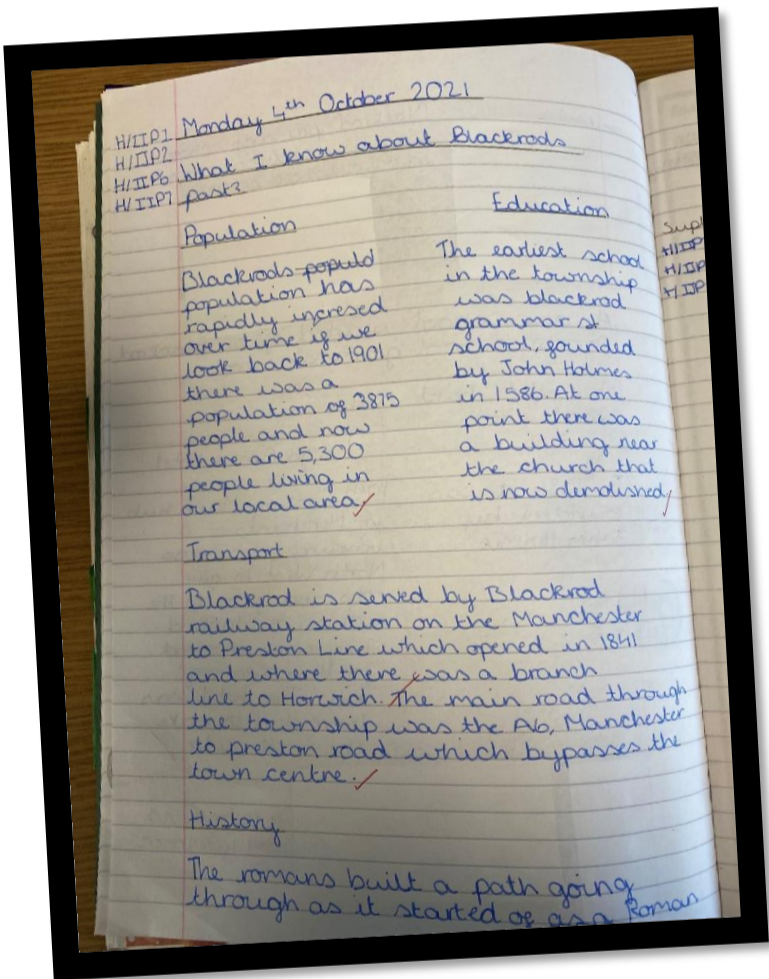 H/IIP1
H/IIP2
H/IIP6
H/IIP7
Monday 4th October 2021
What I know about Blackrods
past?
Population
Blackrods populd
population has
rapidly incresed
over time if we
look back to 1901
there was a
population of 3875
people and now
there are 5,300
people living in
our local area
Education
The earliest school
in the township
was blackrod
grammar st
school, founded
by John Holmes
in 1586. At one
point there was
a building near
the church that
is now demolished
Transport
Blackrod is served by Blackrod
railway station on the Manchester
to Preston Line which opened in 1841
and where there was a branch
line to Horwich. The main road through
the township was the A6, Manchester
to preston road which bypasses the
town centre.
History
The romans built a path going
through as it started of as a Roman